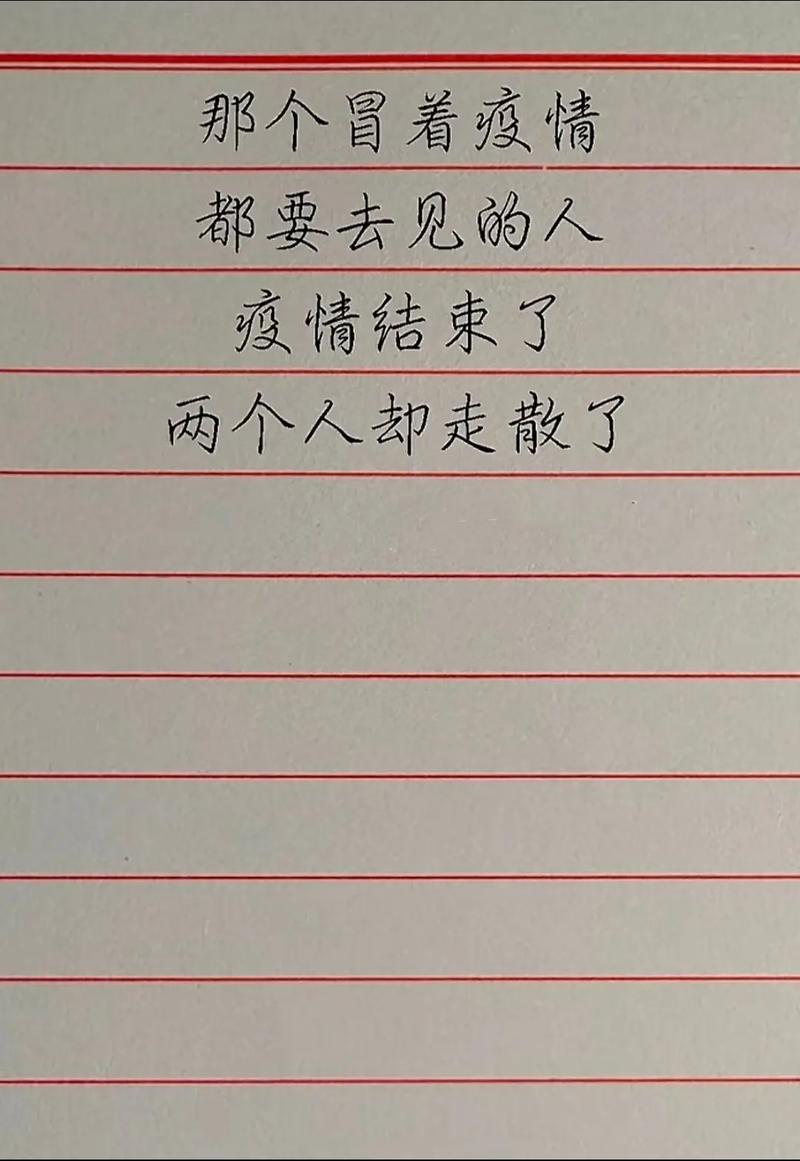 那个冒着疫情
都要去见的人
疫情结束了
两个人却走散了